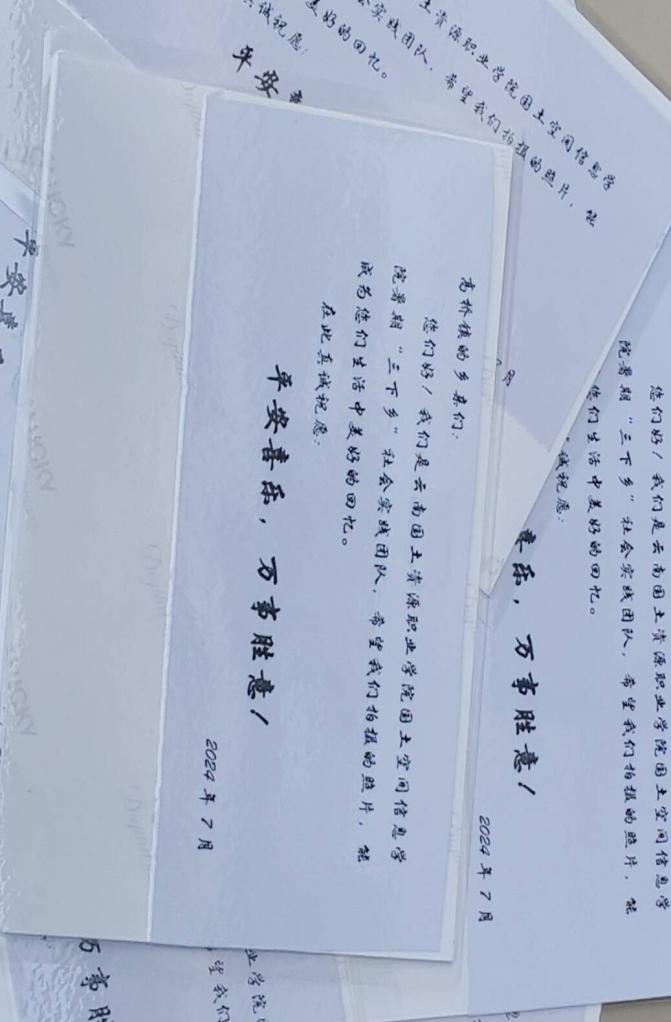 高桥镇的乡亲们：
您们好！我们是云南国土资源职业学院国土空间信息学
院暑期“三下乡”社会实践团队，希望我们拍摄的照片，能
成为您们生活中美好的回忆。
在此真诚祝愿：
平安喜乐，万事胜意！
2024年7月
土资源职业学院国土空间信息学
社会实践团队，希望我们拍摄的照片，能
美好的回忆。
真诚祝愿：
平安喜
月
您们好！我们是云南国土资源职业学院国土空间信息学
院暑期“三下乡”社会实践团队，希望我们拍摄的照片，能
您们生活中美好的回忆。
诚祝愿：
喜乐，万事胜意！
2024年7月
平安喜
业学院国
希望我们
万事胜